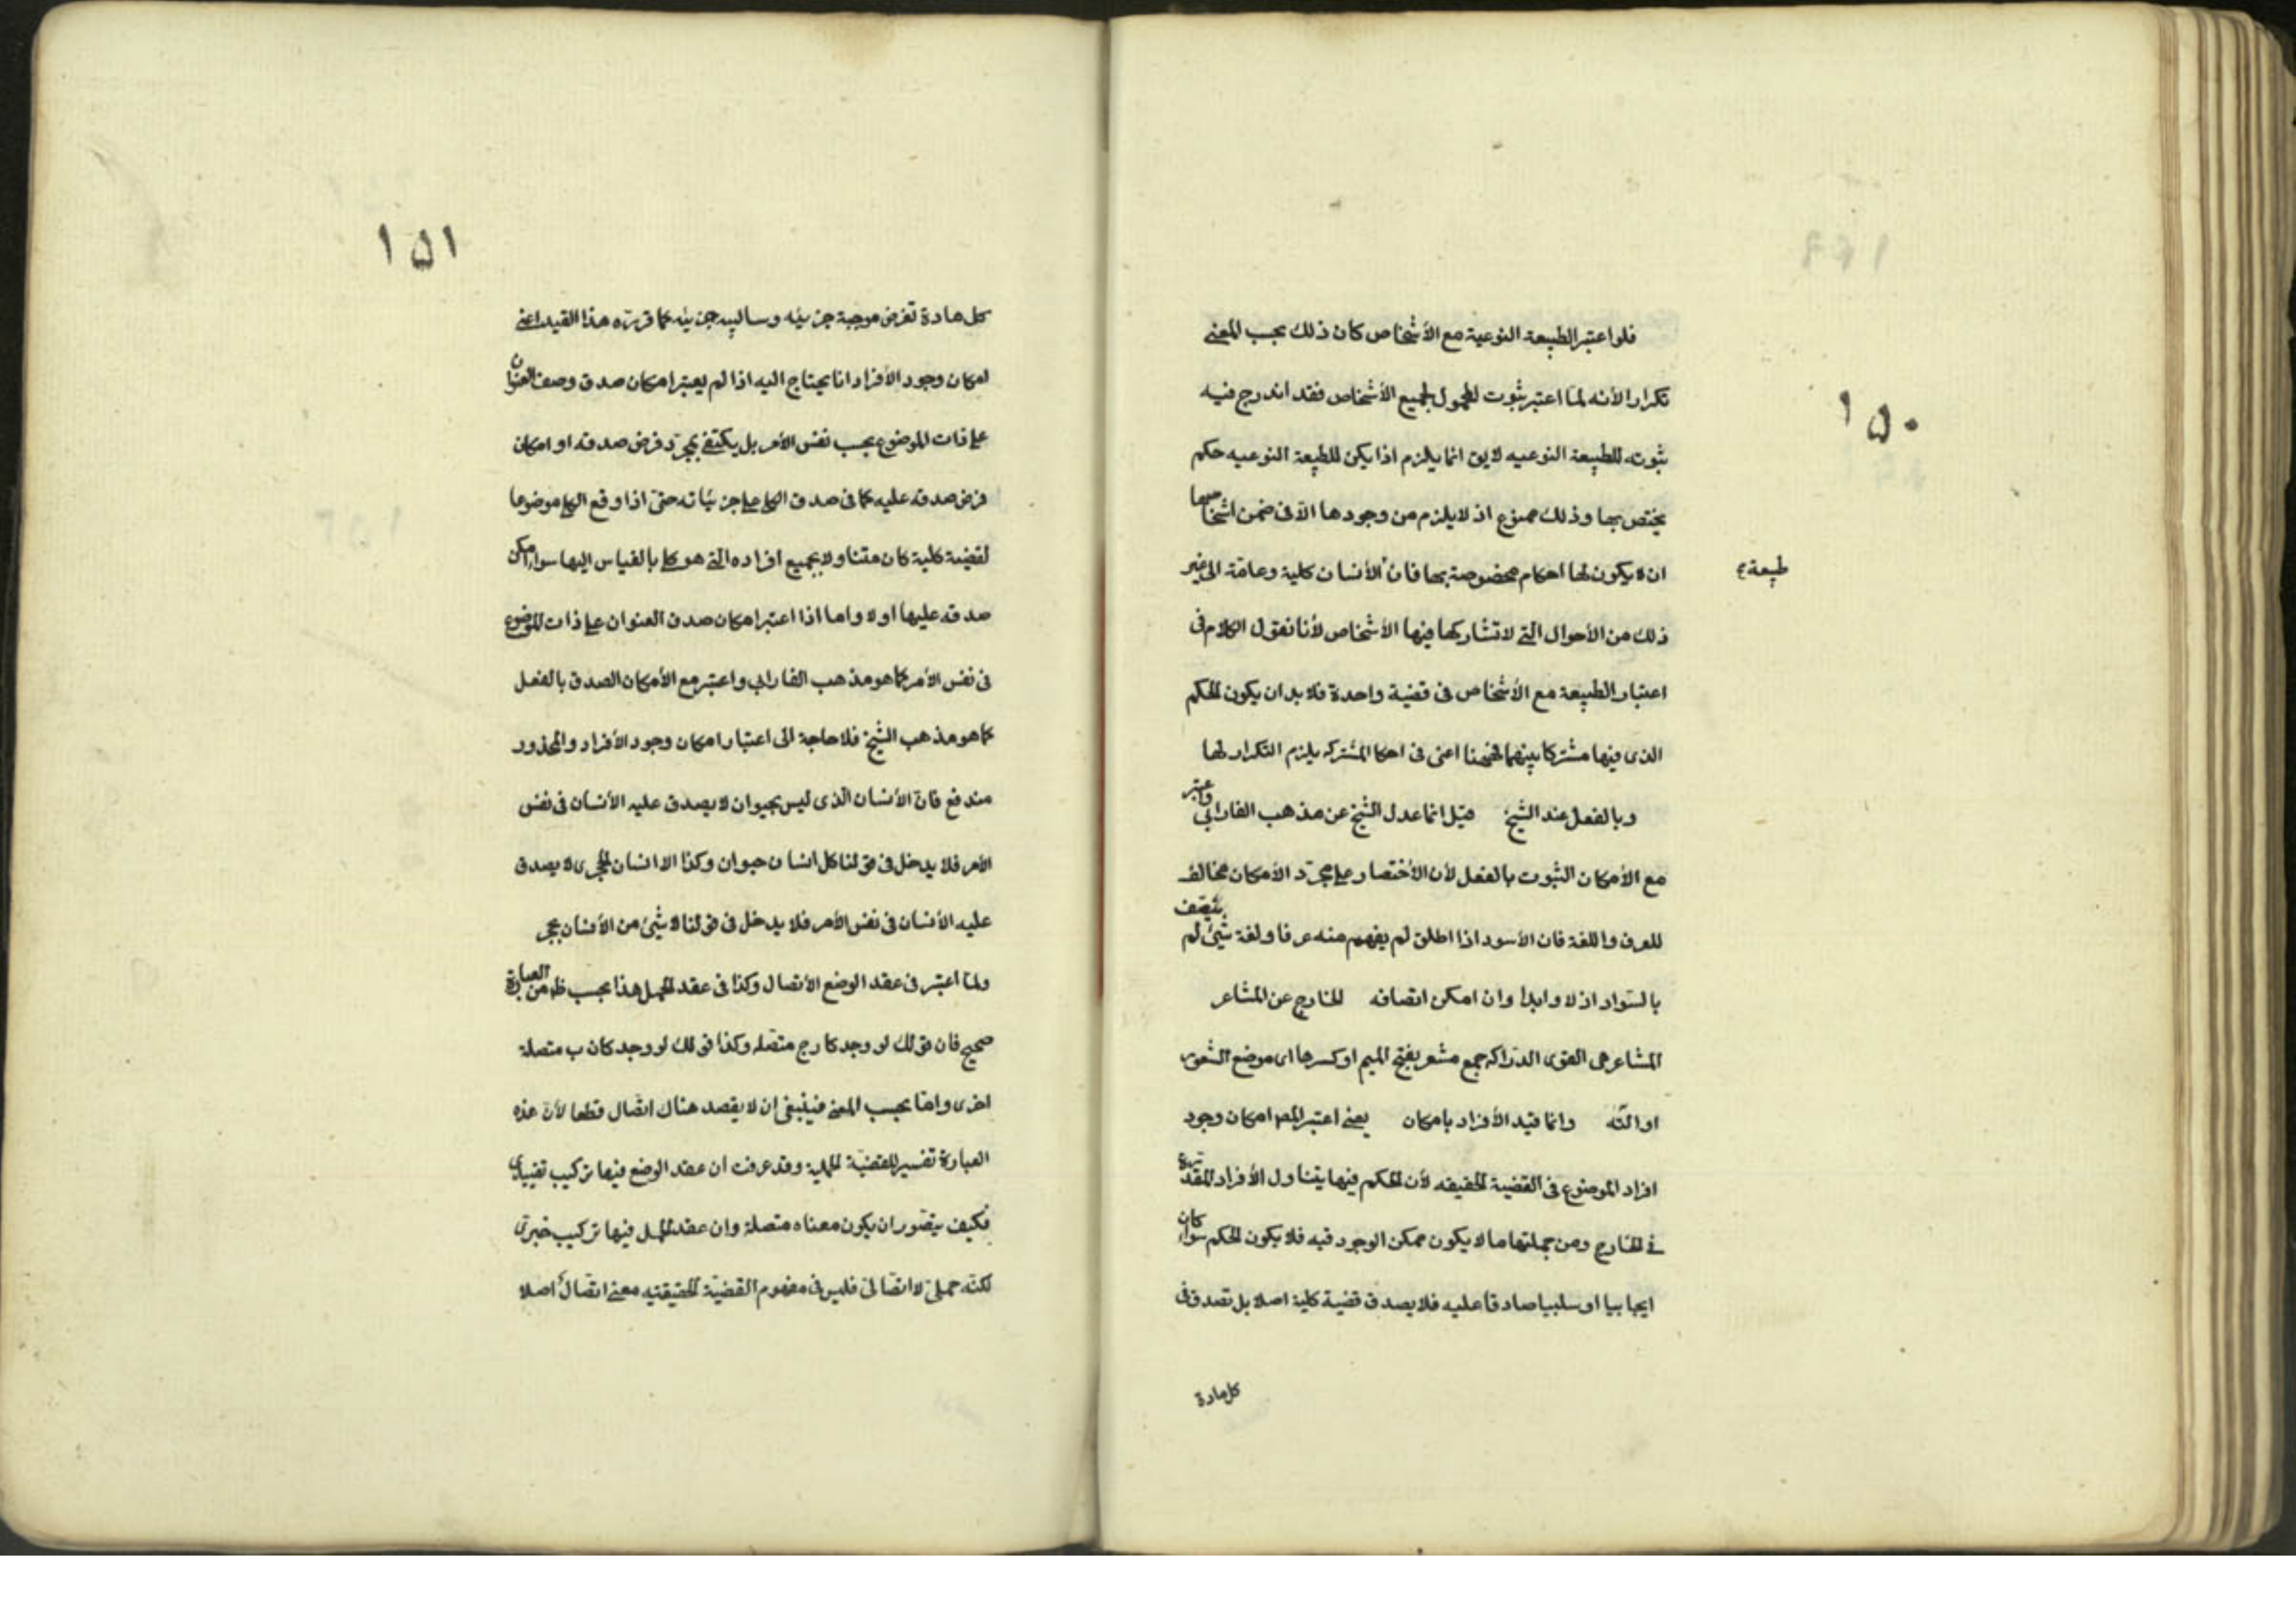 ١٥٠
فلو اعتبر الطبيعة النوعية مع الأشخاص كان ذلك بحسب المعنى
تكرارا لأنه لما اعتبر ثبوت المحمول لجميع الأشخاص فقد اندرج فيه
ثبوته للطبيعة النوعيه لايق انما يلزم اذا يكن للطبيعة النوعيه حكم
يختص بها وذلك ممنوع اذ لا يلزم من وجودها الا فى ضمن اشخاصها
ان لا يكون لها احكام مخصوصة بها فان الأنسان كلية وعامة الى غير
طبيعة
ذلك من الأحوال التى لا تشاركها فيها الأشخاص لأنا نقول الكلام فى
اعتبار الطبيعة مع الأشخاص فى قضية واحدة فلا بد ان يكون الحكم
الذى فيها مشتركا بينهما فههنا اعنى فى احكا المشتركه يلزم التكرار لها
وبالفعل عند الشيخ قيل انما عدل الشيخ عن مذهب الفارابى واعتبر
مع الأمكان الثبوت بالفعل لأن الأختصار على مجرّد الأمكان مخالف
للعرف واللغة فان الأسود اذا اطلق لم يفهم منه عرفا ولغة شئ لم يتصف
بالسّواد ازلا وابدا وان امكن اتصافه الخارج عن المشاعر
المشاعر هى القوى الدرّاكه جمع مشعر بفتح الميم او كسرها اى موضع الشعور
او آلته وانما قيّد الأفراد بامكان يعنى اعتبر المص امكان وجود
افراد الموضوع فى القضية الحقيقه لأن الحكم فيها يتناول الأفراد المقدرة
فى الخارج ومن جملتها ما لا يكون ممكن الوجود فيه فلا يكون الحكم سواء كان
ايجابيا او سلبيا صادقا عليه فلا يصدق قضية كلية اصلا بل تصدق فى
كل مادة
١٥١
كل مادة تفرض موجبة جزئيه وسالبه جزئيه كما قررّه هذا القيد اعنى
امكان وجود الأفراد انما يحتاج اليه اذا لم يعتبر امكان صدق وصف العنوان
على ذات الموضوع بحسب نفس الأمر بل يكتفى بمجرّد فرض صدقه او امكان
فرض صدقه عليه كما فى صدق الكلى على جزئياته حتى اذا وقع الكلى موضوعا
لقضية كلية كان متناولا لجميع افراده التى هو كلى بالقياس اليها سواء امكن
صدقه عليها اولا واما اذا اعتبر امكان صدق العنوان على ذات الموضوع
فى نفس الأمر كما هو مذهب الفارابى واعتبر مع الأمكان الصدق بالفعل
كما هو مذهب الشيخ فلا حاجة الى اعتبار امكان وجود الأفراد والمحذور
مندفع فان الأنسان الّذى ليس بحيوان لا يصدق عليه الأنسان فى نفس
الأمر فلا يدخل فى قولنا كل انسان حيوان وكذا الا انسان الحجرى لا يصدق
عليه الأنسان فى نفس الأمر فلا يدخل فى قولنا لا شئ من الأنسان بحجر
ولمّا اعتبر فى عقد الوضع الأتصال وكذا فى عقد الحمل هذا بحسب ظه من العبارة
صحيح فان قولك لو وجد كا رج متصله وكذا قولك لو وجد كان ب متصلة
اخرى وامّا بحسب المعنى فينبغى ان لا يقصد هناك اتّصال قطعا لأن هذه
العبارة تفسير للقضيّة الحملية وقد عرفت ان عقد الوضع فيها تركيب تقييدى
فكيف يتصّور ان يكون معناه متصلة وان عقد الحمل فيها تركيب خبرى
لكنّه حملىّ لا اتصالىّ فليس فى مفهوم القضيّة الحقيقيّه معنى اتصّال اصلا